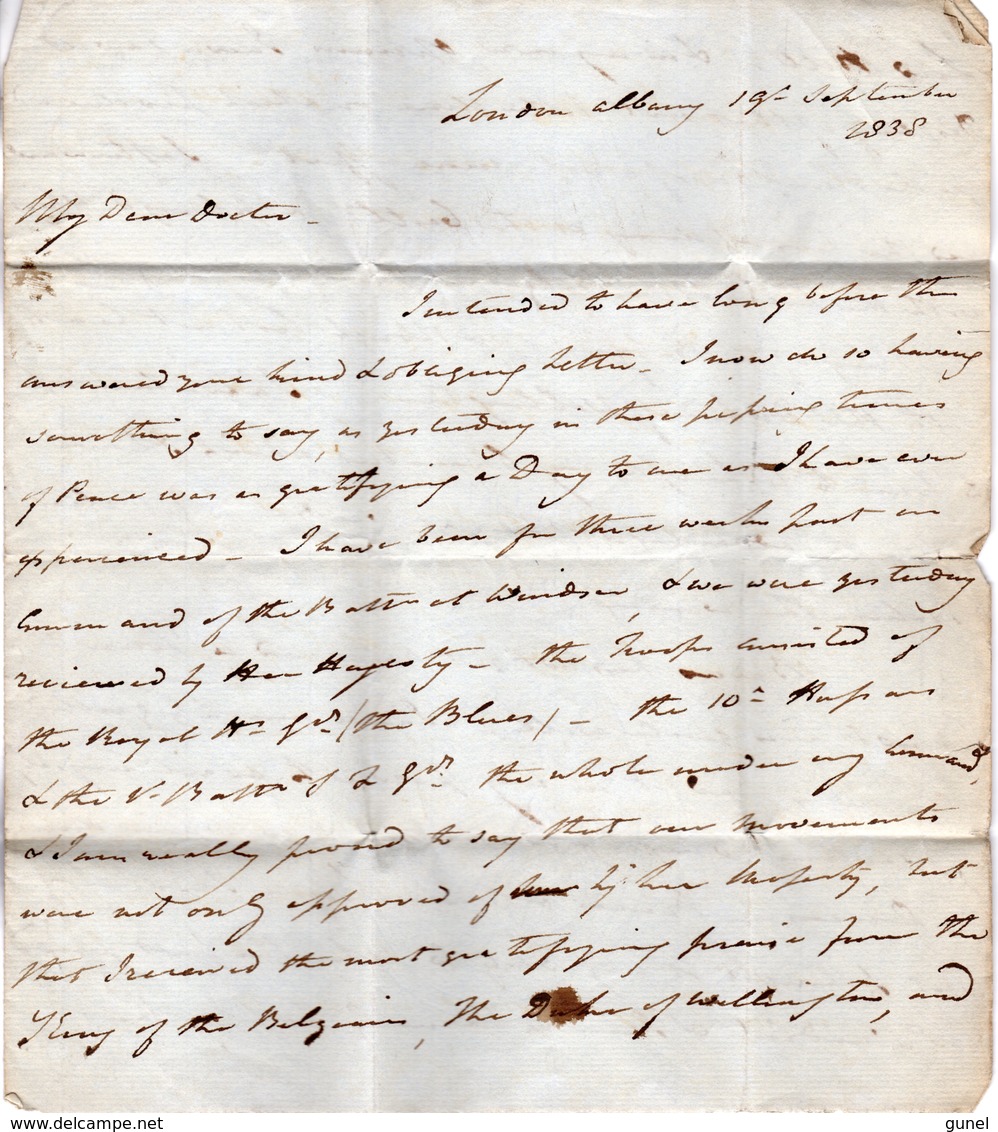 London Albany 19th September
1838
My Dear Doctor -
I intended to have long before this
answered your kind & obliging letter - I now do so having
something to say, as yesterday in these piping times
of Peace was as gratifying a Day to me as I have ever
experienced - I have been for three weeks past in
Command of the Battn at Windsor, & we were yesterday
reviewed by Her Majesty - the Troops consisted of
the Royal Hs Gds (the Blues) - the 10th Hussars
& the Battn Gds the whole under my Command,
& I am really proud to say that our movements
were not only approved of by her Majesty, but
that I received the most gratifying praise from the
King of the Belgians, The Duke of Wellington, and
delcampe.net
gunel